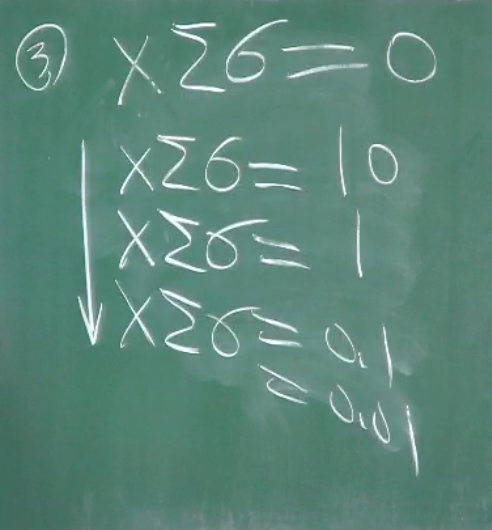 ③ XΣσ=0
XΣσ=10
XΣσ=1
XΣσ=0.1
=0.01